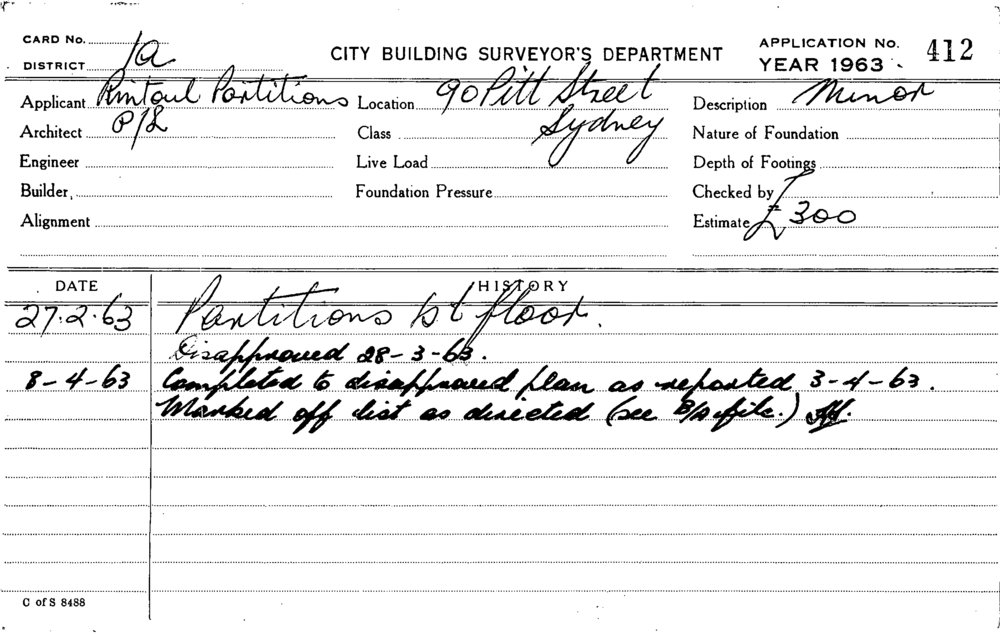 CARD No.
DISTRICT 1a
CITY BUILDING SURVEYOR'S DEPARTMENT
APPLICATION No. 412
YEAR 1963
Applicant Rintoul Partitions P/L
Location 90 Pitt Street Sydney
Description Minor
Architect
Class
Nature of Foundation
Engineer
Live Load
Depth of Footings
Builder
Foundation Pressure
Checked by
Alignment
Estimate £300
DATE HISTORY
27.2.63 Partitions 1st floor.
Disapproved 28-3-63.
8-4-63 Completed to disapproved plan as reported 3-4-63.
Marked off list as directed (see B/S file.)
C of S 8488